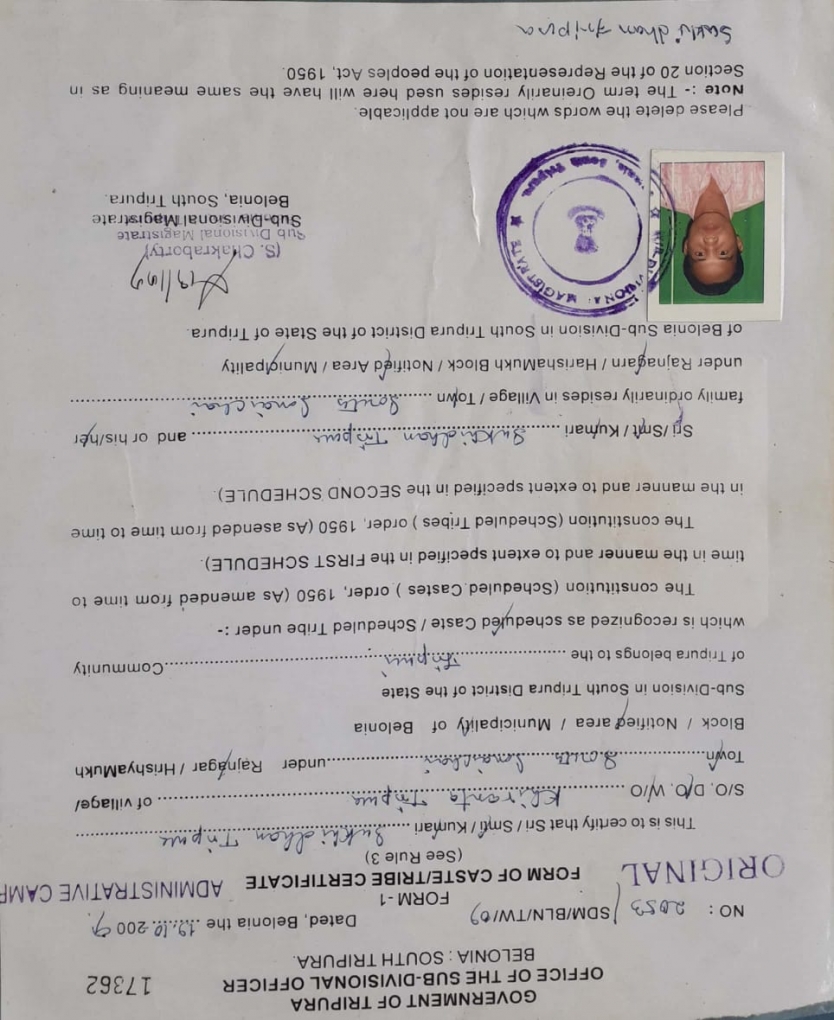 GOVERNMENT OF TRIPURA
OFFICE OF THE SUB-DIVISIONAL OFFICER
BELONIA : SOUTH TRIPURA.
17362
NO : 2053/SDM/BLN/TW/09
Dated, Belonia, the 19.10.2009
FORM - 1
ORIGINAL
FORM OF CASTE/TRIBE CERTIFICATE
ADMINISTRATIVE CAMP
(See Rule 3)
This is to certify that Sri / Smti / Kumari Sukhidhan Tripura
S/O. D/O. W/O Khiranta Tripura of village/
Town South Sonaichari under Rajnagar / HrishyaMukh
Block / Notified area / Municipality of Belonia
Sub-Division in South Tripura District of the State
of Tripura belongs to the Tripuri Community
which is recognized as scheduled Caste / Scheduled Tribe under :-
The constitution (Scheduled Castes ) order, 1950 (As amended from time to
time in the manner and to extent specified in the FIRST SCHEDULE).
The constitution (Scheduled Tribes ) order, 1950 (As asended from time to time
in the manner and to extent specified in the SECOND SCHEDULE).
Sri /Smti / Kumari Sukhidhan Tripura and or his/her
family ordinarily resides in Village / Town South Sonaichari
under Rajnagarn / HarishaMukh Block / Notified Area / Municipality
of Belonia Sub-Division in South Tripura District of the State of Tripura.
SUB-DIVISIONAL MAGISTRATE
South Tripura
(S. Chakraborty)
Sub Divisional Magistrate
Sub-Divisional Magistrate
Belonia, South Tripura.
Please delete the words which are not applicable.
Note :- The term Oreinarily resides used here will have the same meaning as in
Section 20 of the Representation of the peoples Act, 1950.
Sukhidhan Tripura